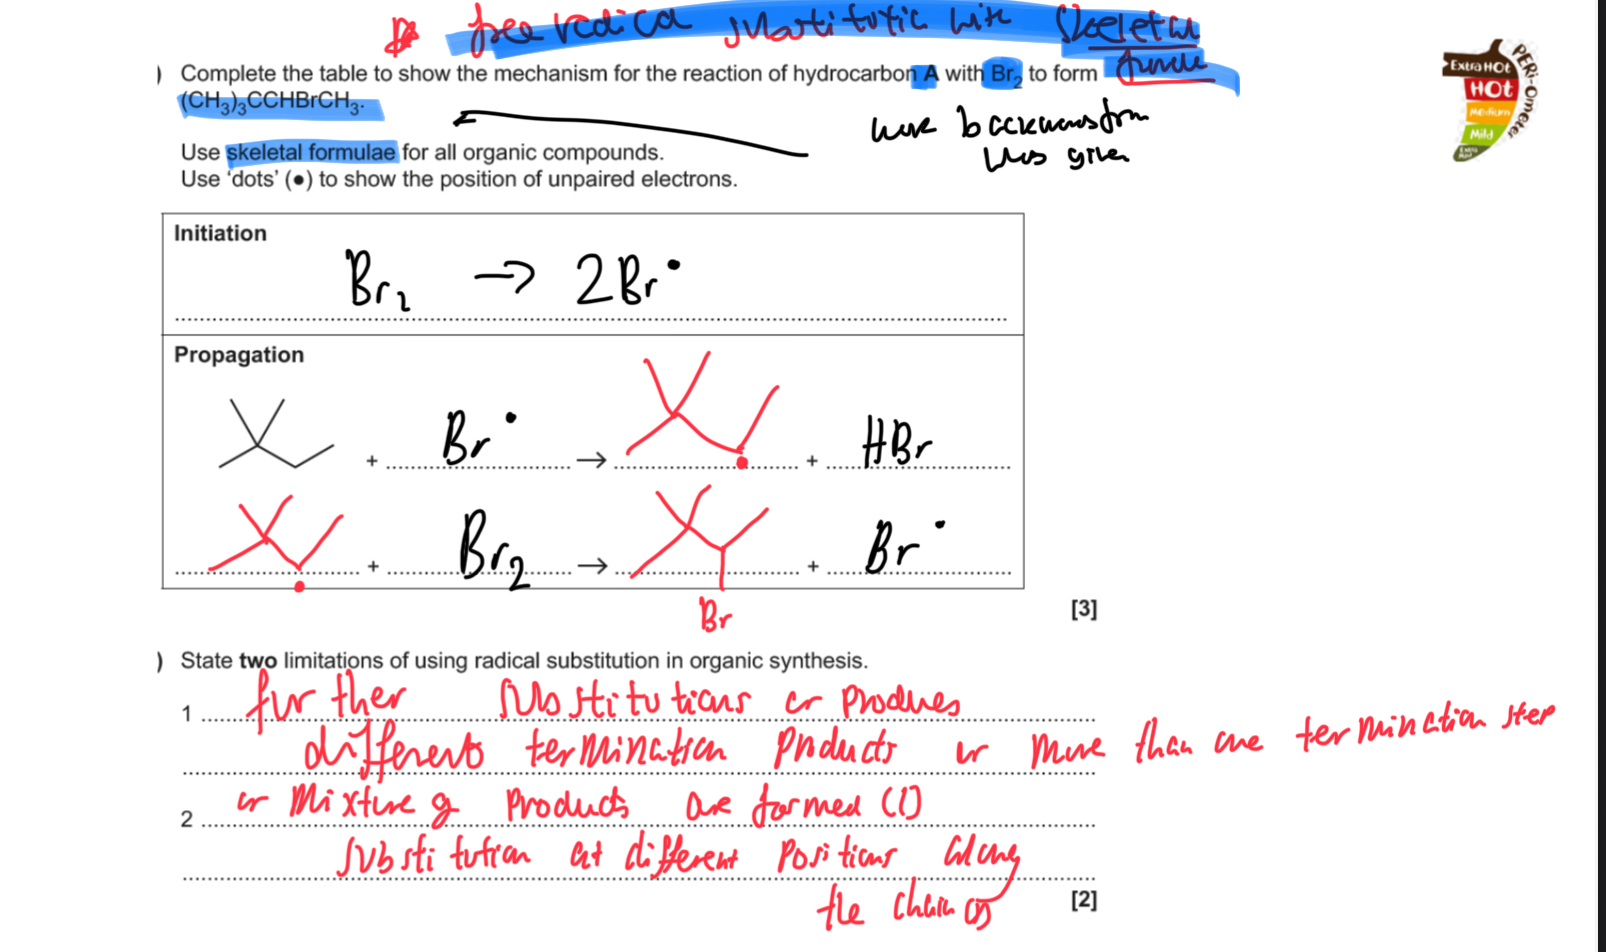 free radical substitution with skeletal
formulae
) Complete the table to show the mechanism for the reaction of hydrocarbon A with Br₂ to form
(CH₃)₃CCHBrCH₃.
work backwards from
this given
Use skeletal formulae for all organic compounds.
Use 'dots' (●) to show the position of unpaired electrons.
ExtraHOt
HOt
Medium
Mild
Extra Mild
PERi-Ometer
Initiation
Br₂ → 2Br•
Propagation
+ Br• → + HBr
+ Br₂ → + Br•
Br
[3]
) State two limitations of using radical substitution in organic synthesis.
1 further substitutions or produces
different termination products or more than one termination step
2 or mixture of products are formed (1)
substitution at different positions along
the chain (1)
[2]